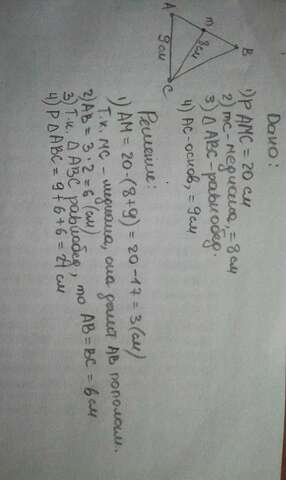 Дано:
1) P AMC = 20 см
2) mC - медиана, = 8 см
3) Δ ABC - равнобед.
4) AC - основ, = 9 см
A
m
B
8 см
9 см
C
Решение:
1) AM = 20 - (8+9) = 20 - 17 = 3 (см)
Т.к. MC - медиана, она делит AB пополам.
2) AB = 3 · 2 = 6 (см)
3) Т.к. Δ ABC равнобед, то AB = BC = 6 см
4) P Δ ABC = 9+6+6 = 21 см